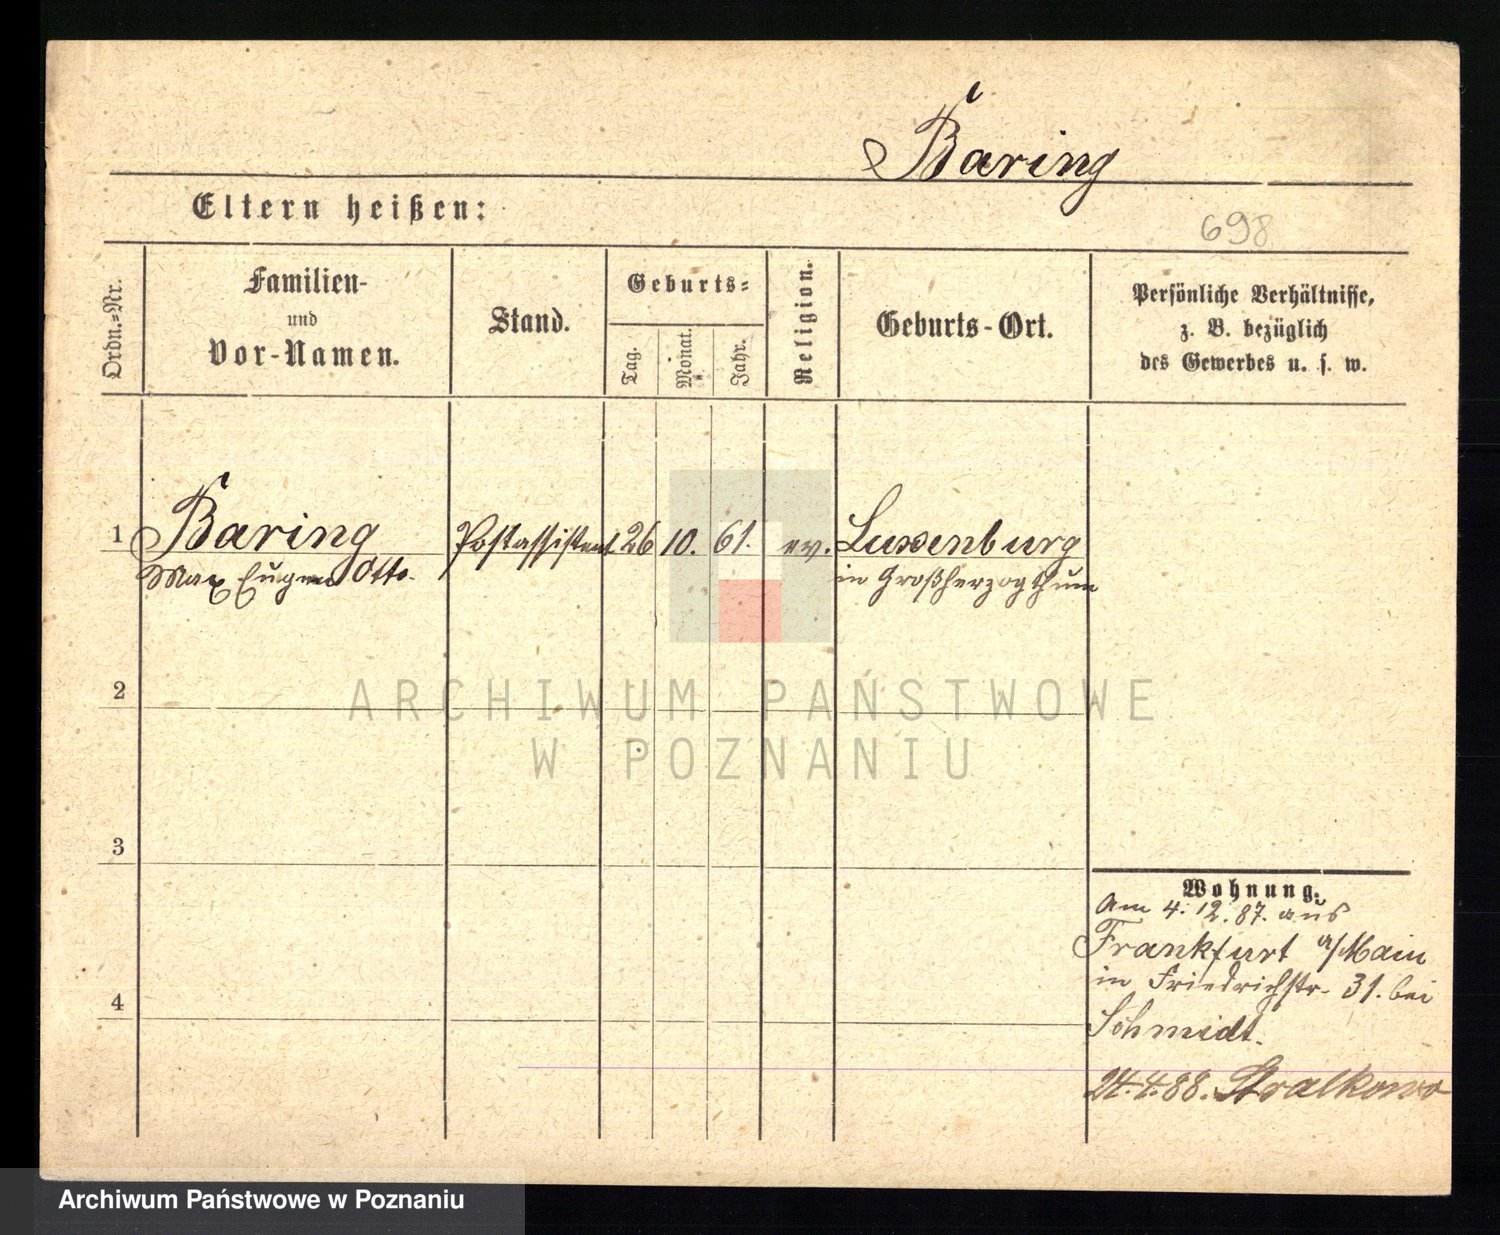 Baring
Eltern heißen:
698
Ordn.-Nr.
Familien-
und
Vor-Namen.
Stand.
Geburts-
Tag.
Monat.
Jahr.
Religion.
Geburts-Ort.
Persönliche Verhältnisse,
z. B. bezüglich
des Gewerbes u. s. w.
1 Baring Postassistent 26 10. 61. ev. Luxenburg
Max Eugen Otto. in Großherzogthum
2
ARCHIWUM PAŃSTWOWE
W POZNANIU
3
Wohnung.
Am 4. 12. 87. aus
Frankfurt a/Main
in Friedrichstr. 31. bei
4
Schmidt.
24.4.88. Stralkowo
Archiwum Państwowe w Poznaniu